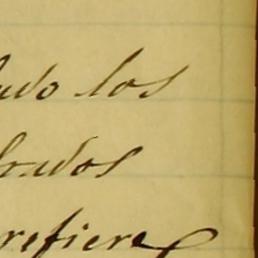 udo los
rados
refiere